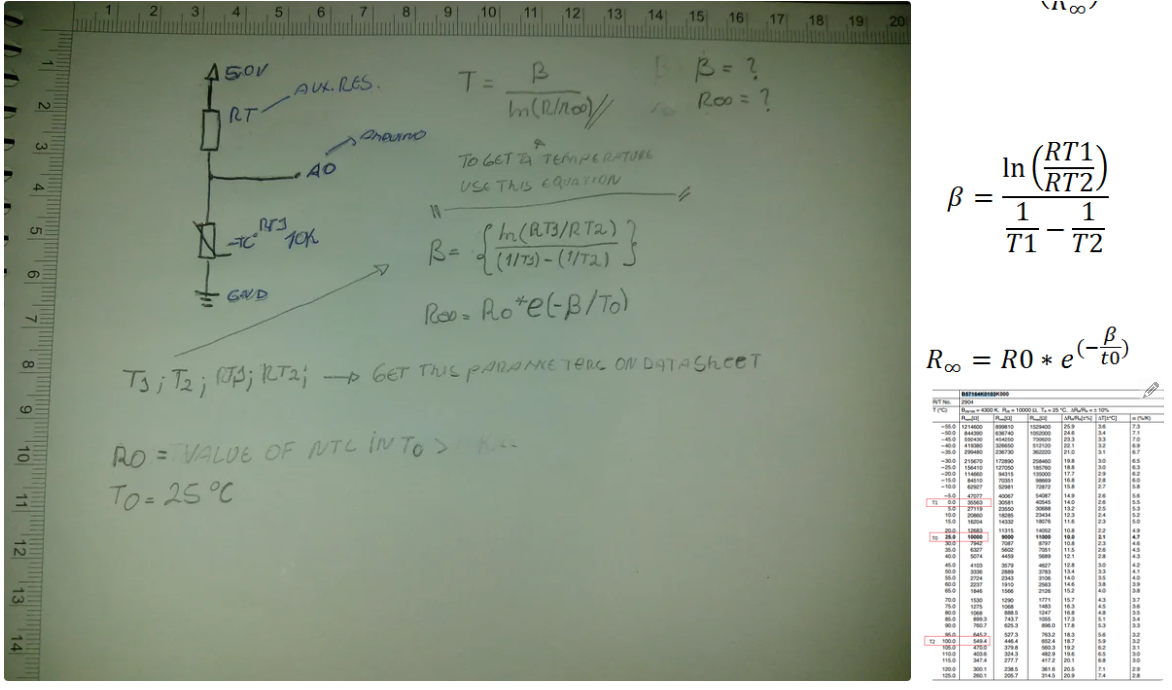 1 2 3 4 5 6 7 8 9 10 11 12 13 14 15 16 17 18 19 20
1 2 3 4 5 6 7 8 9 10 11 12 13 14
5.0V
RT
AUX. RES.
ARDUINO
A0
RT1
-TC° 10K
GND
T = β / ln(R/R∞)
β = ?
R∞ = ?
TO GET A TEMPERATURE
USE THIS EQUATION
β = { ln(RT1/RT2) / (1/T1) - (1/T2) }
R∞ = R0 * e(-β/T0)
T1; T2; RT1; RT2; → GET THIS PARAMETERS ON DATASHEET
R0 = VALUE OF NTC IN T0
T0 = 25°C
(R∞)
β = ln(RT1/RT2) / (1/T1 − 1/T2)
R∞ = R0 * e^(−β/t0)
R/T No. 2904
T (°C) = 4300 K, = 10000 Ω, = 25 °C, = ± 10%
−55.0 1214600 899610 1529400 25.9 3.6 7.3
−50.0 844390 636740 1052000 24.6 3.4 7.1
−45.0 592430 454250 730620 23.3 3.3 7.0
−40.0 419380 326650 512120 22.1 3.2 6.9
−35.0 299480 236730 362220 21.0 3.1 6.7
−30.0 215670 172890 258460 19.8 3.0 6.5
−25.0 156410 127050 185760 18.8 3.0 6.3
−20.0 114660 94315 135000 17.7 2.9 6.2
−15.0 84510 70351 98669 16.8 2.8 6.0
−10.0 62927 52981 72872 15.8 2.7 5.8
−5.0 47077 40067 54087 14.9 2.6 5.6
0.0 35563 30581 40545 14.0 2.6 5.5
5.0 27119 23550 30688 13.2 2.5 5.3
10.0 20860 18285 23434 12.3 2.4 5.2
15.0 16204 14332 18076 11.6 2.3 5.0
20.0 12683 11315 14052 10.8 2.2 4.9
25.0 10000 9000 11000 10.0 2.1 4.7
30.0 7942 7087 8797 10.8 2.3 4.6
35.0 6327 5602 7051 11.5 2.6 4.5
40.0 5074 4459 5689 12.1 2.8 4.3
45.0 4103 3579 4627 12.8 3.0 4.2
50.0 3336 2889 3783 13.4 3.3 4.1
55.0 2724 2343 3106 14.0 3.5 4.0
60.0 2237 1910 2563 14.6 3.8 3.9
65.0 1846 1566 2126 15.2 4.0 3.8
70.0 1530 1290 1771 15.7 4.3 3.7
75.0 1275 1068 1483 16.3 4.5 3.6
80.0 1068 888.5 1247 16.8 4.8 3.5
85.0 899.3 743.7 1055 17.3 5.1 3.4
90.0 760.7 625.3 896.0 17.8 5.3 3.3
95.0 645.2 527.3 763.2 18.3 5.6 3.2
T2 100.0 549.4 446.4 652.4 18.7 5.9 3.2
105.0 470.0 379.8 560.3 19.2 6.2 3.1
110.0 403.6 324.3 482.9 19.6 6.5 3.0
115.0 347.4 277.7 417.2 20.1 6.8 3.0
120.0 300.1 238.5 361.6 20.5 7.1 2.9
125.0 260.1 205.7 314.5 20.9 7.4 2.8